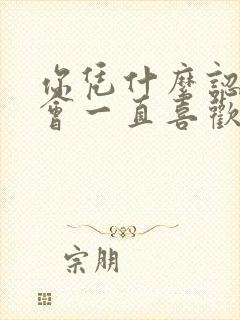 你凭什麼認
會一直喜歡
宗朋